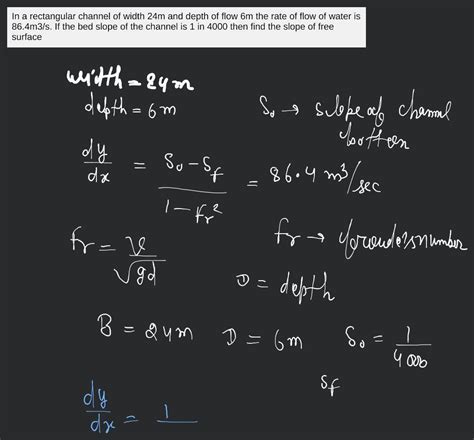 In a rectangular channel of width 24m and depth of flow 6m the rate of flow of water is
86.4m3/s. If the bed slope of the channel is 1 in 4000 then find the slope of free
surface
width = 24m
depth = 6m
S₀ → slope of channel
bottom
dy/dx = (S₀ - Sf)/(1 - Fr²) = 86.4 m³/sec
fr = v/√gd
fr → frouder's number
D = depth
B = 24m D = 6m S₀ = 1/4000
Sf
dy/dx = 1